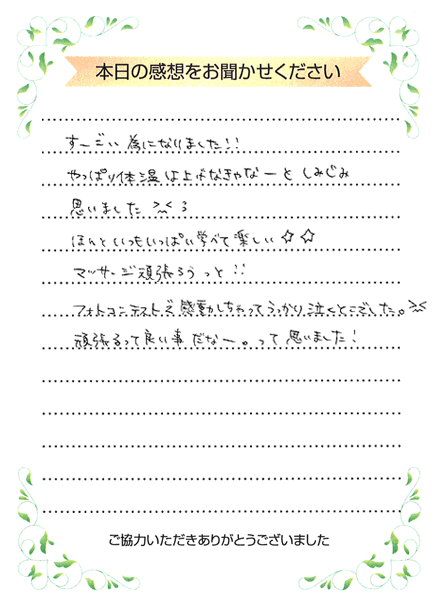 本日の感想をお聞かせください
すーごい為になりました!!
やっぱり体温は上げなきゃなーとしみじみ
思いました >_< る
ほんといつもいっぱい学べて楽しい☆☆
マッサージ頑張ろうっと!!
フォトコンテストで感動しちゃってうっかり泣くとこでした。>_<
頑張るって良い事だなー。って思いました!
ご協力いただきありがとうございました